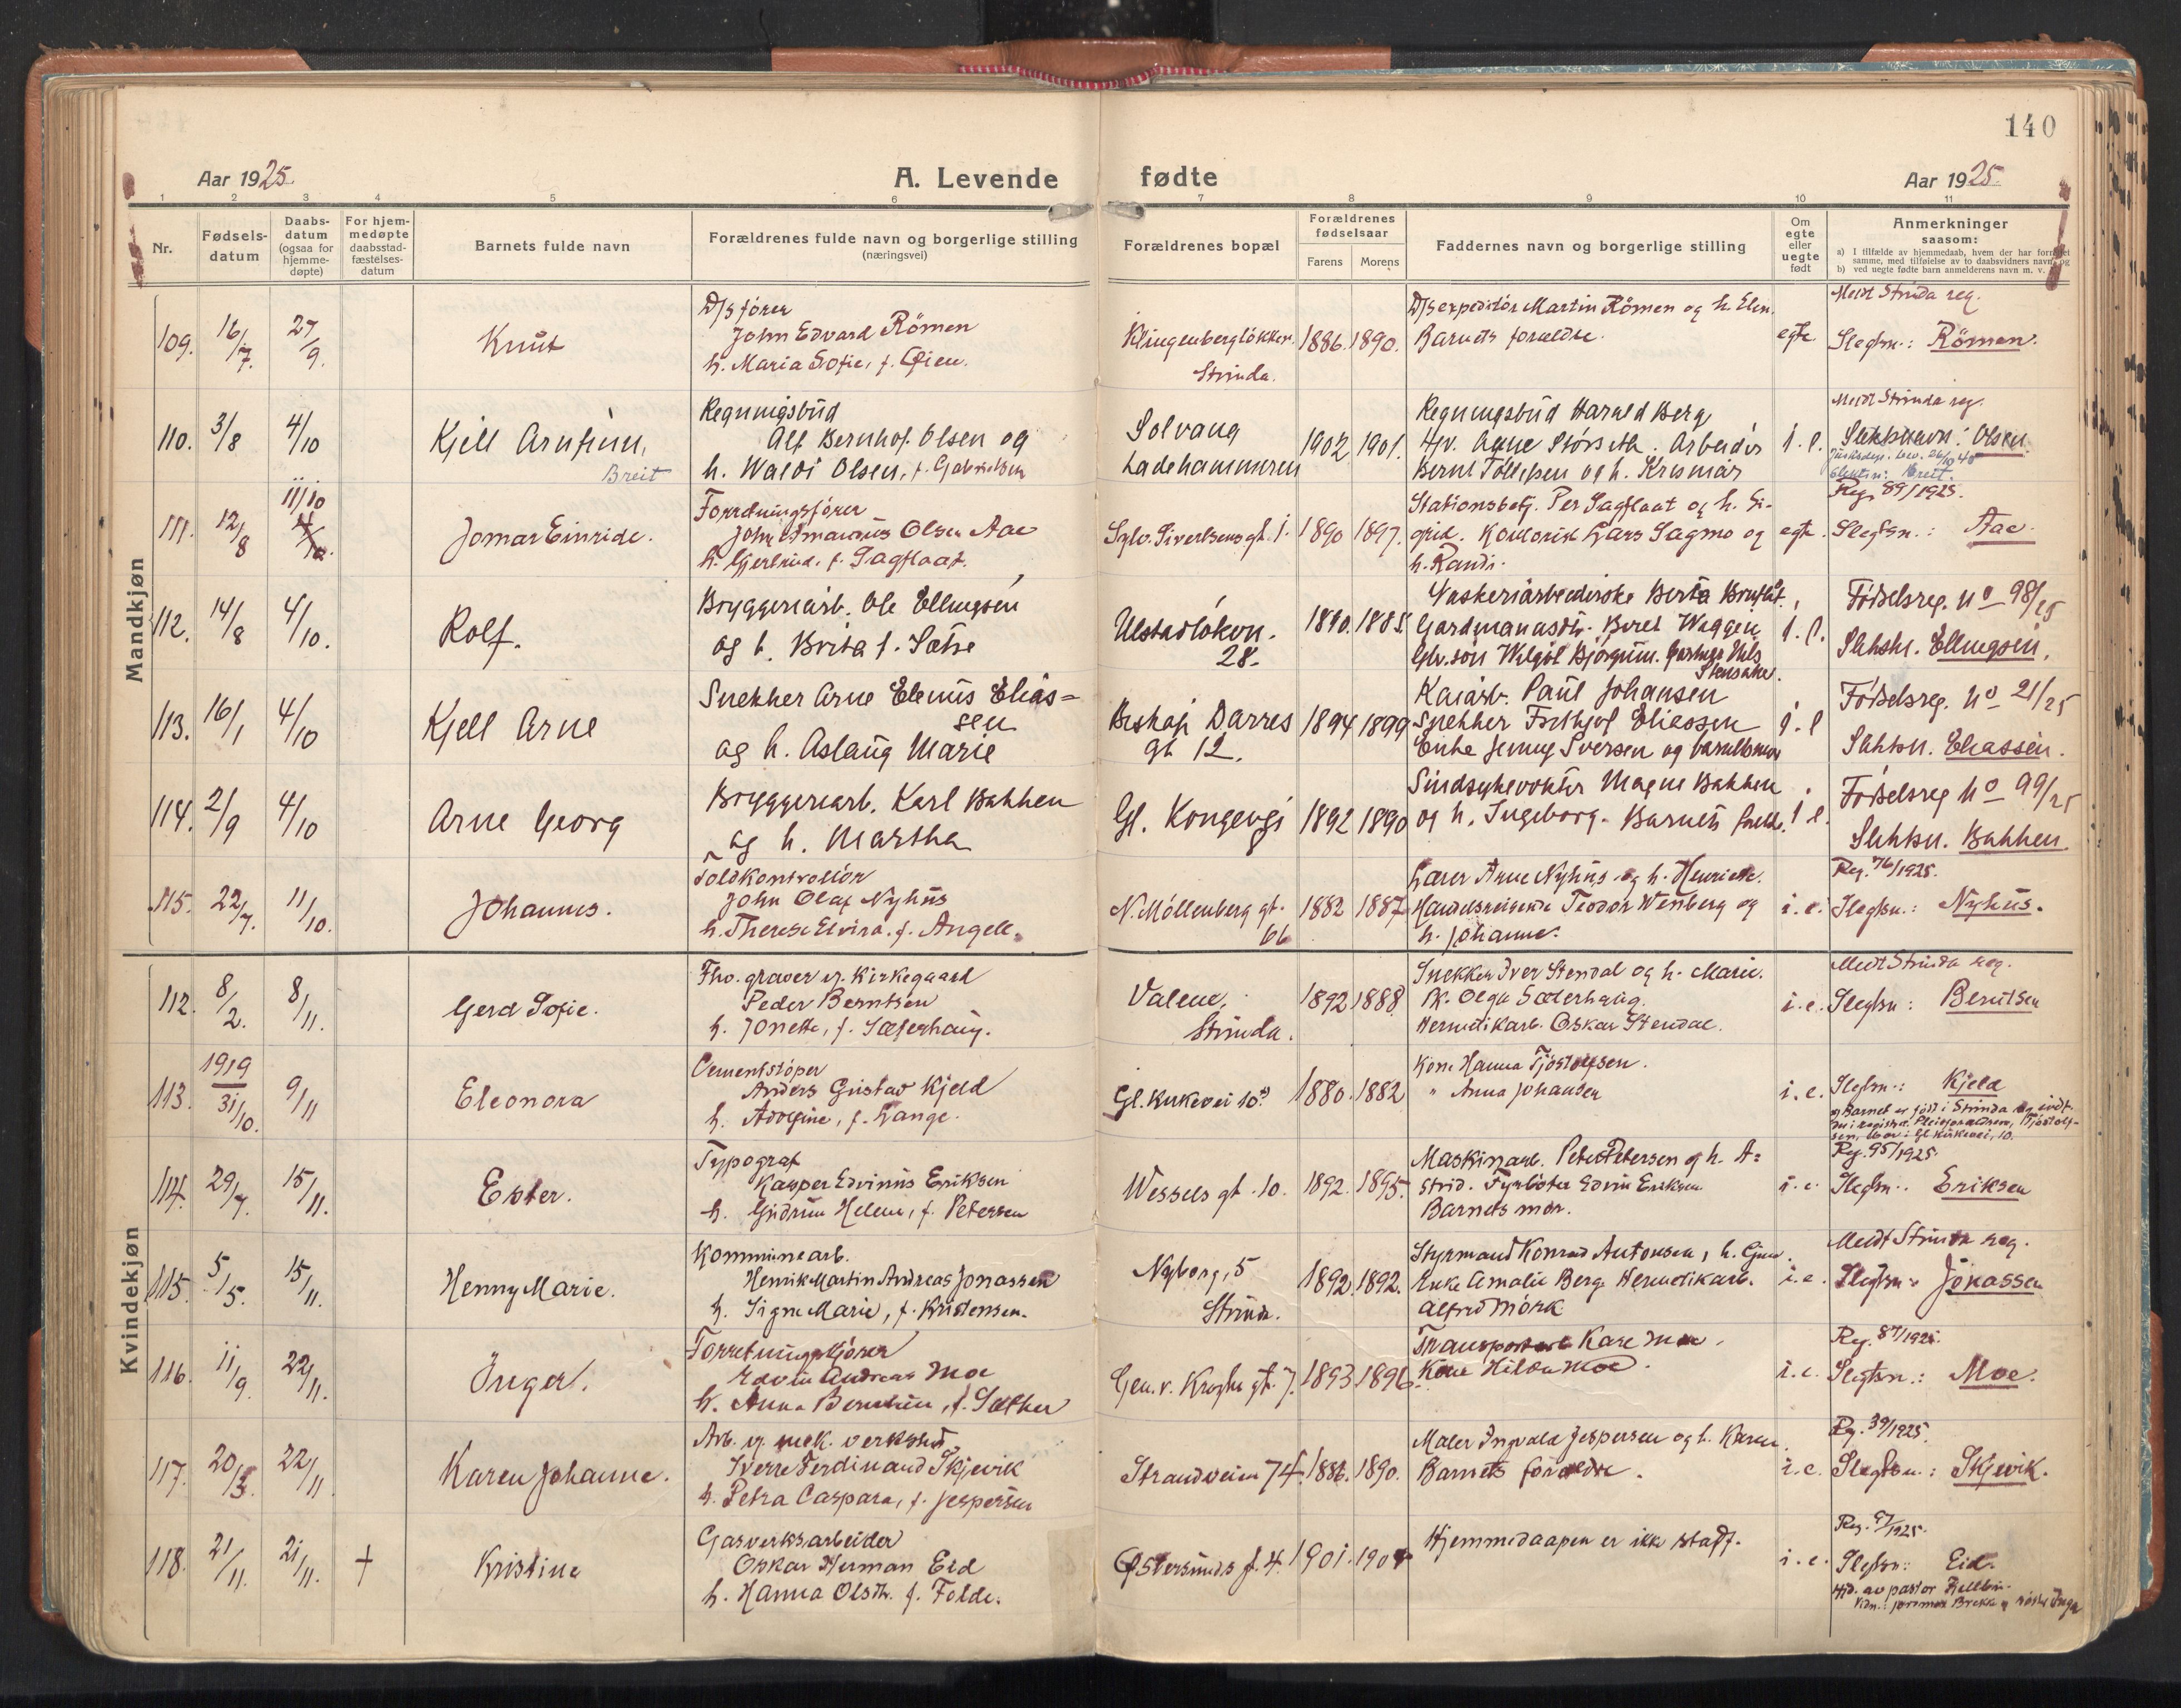 140
Aar 1925. A. Levende fødte Aar 1925.
1 2 3 4 5 6 7 8 9 10 11
Nr. Fødsels-datum Daabs-datum (ogsaa for hjemme-døpte) For hjem-medøpte daabsstad-fæstelses-datum Barnets fulde navn Forældrenes fulde navn og borgerlige stilling (næringsvei) Forældrenes bopæl Forældrenes fødselsaar Farens Morens Faddernes navn og borgerlige stilling Om egte eller uegte født Anmerkninger saasom:
a) I tilfælde av hjemmedaab, hvem der har forrettet samme, med tilføielse av to daabsvidners navn, og
b) ved uegte fødte barn anmelderens navn m. v.
Mandkjøn
109. 16/7. 27/9. Knut
D/S fører
John Edvard Römen
h. Maria Sofie, f. Øien.
Klingenbergløkken
Strinda.
1886. 1890.
D/S expeditør Martin Römen og h. Elen.
Barnets foreldre.
egte.
Meldt Strinda reg.
Slegtsn.: Römen.
110. 3/8 4/10 Kjell Arnfinn,
Breit
Regningsbud
Alf Bernhof. Olsen og
h. Waldi Olsen, f. Gabrielsen
Solvang
Ladehammeren
1902 1901.
Regningsbud Harald Berg
Arbeider
Bernt Tollefsen og h.
Meldt Strinda reg.
Slektsnavn: Olsen.
Breit.
111. 12/8 11/10 Jomar Einride.
Forretningsfører
John Olsen Aae
h. Gjertrud. f. Sagflaat.
Sylv. Sivertsens gt. 1. 1890 1897.
Stationsbetj. Per Sagflaat og h. Si-
grid. Kontorist Lars Sagmo og
h. Randi.
egte.
Reg. 89/1925.
Slegtsn.: Aae.
112. 14/8 4/10. Rolf.
Bryggeriarb. Ole Ellingsen
og h. Brita f. Sætre
Ulstadløkken.
28.
1890. 1885.
Vaskeriarbeiderske Berta
Gardmannsdtr. Beret Waggen
Fødselsreg. No 98/25
Slektsn. Ellingsen.
113. 16/1 4/10 Kjell Arne
Snekker Arne Elenus Elias=
sen
og h. Aslaug Marie
Biskop Darres
gt 12.
1894 1899
Kaiarb. Paul Johansen
Snekker Fridtjof Eliassen
Enke Jenny Iversen og barnets mor
Fødselsreg. No 21/25
Slektsn. Eliassen.
114. 2/9 4/10 Arne Georg
Bryggeriarb. Karl Bakken
og h. Martha
Gl. Kongevei 1892 1890
Sindsykevokter Magne Bakken
og h. Ingeborg. Barnets foreld.
Fødselsreg No 99/25
Slektsn. Bakken.
115. 22/7. 11/10. Johannes.
Toldkontrollør
John Olaf Nyhus
h. Therese Elvira. f. Angell.
N. Möllenberg gt.
66
1882 1887
Lærer Arne Nyhus og h. Henriette.
Handelsreisende Teodor Wenberg og
h. Johanne.
i.e.
Reg. 76/1925.
Slegtsn.: Nyhus.
Kvindekjøn
112. 8/2. 8/11. Gerd Sofie.
Fho. graver v. Kirkegaard
Peder Berntsen
h. Jonette, f. Sæterhaug.
Valene,
Strinda.
1892 1888
Snekker Iver Stendal og h. Marie.
Pk. Olga Sæterhaug.
Hermetikarb. Oskar Stendal.
i.e.
Meldt Strinda reg.
Slegtsn: Berntsen
113. 1919 31/10. 9/11 Eleonora
Cementstöper
Anders Gustav Kjeld
h. Adolfine, f. Lange.
Gl. Kirkevei 10. 1880. 1882
Kone Hanna Tjöstolfsen.
" Anna Johansen
i.e.
Slegtsn: Kjeld
Barnet er født i Strinda og
Pleieforældrene, Tjöstolf-
sen, bor: Gl. Kirkevei, 10.
114. 29/7. 15/11. Ester.
Typograf
Kasper Edvinus Eriksen
h. Gudrun Helene, f. Petersen
Wessels gt. 10. 1892. 1895.
Maskinarb. Peter Petersen og h. A=
strid. Fyrbøter Edvin Eriksen
Barnets mor.
i.e.
Reg. 95/1925
Slegtsn: Eriksen
115. 5/5. 15/11. Henny Marie.
Kommunearb.
Henrik Martin Andreas Jonassen
h. Signe Marie, f. Kristensen.
Nyborg, 5
Strinda.
1892. 1892.
Styrmand Konrad Antonsen, h.
Enke Amalie Berg. Hermetikarb.
Alfred Mörk
i.e.
Meldt Strinda reg.
Slegtsn: Jonassen
116. 11/9. 22/11. Inger.
Edvin Andreas Moe
h. Anna f. Sæther
Gen. v. Kroghs gt. 7. 1893 1896
Kone Hilda Moe.
i.e.
Reg. 87/1925.
Slegtsn.: Moe.
117. 20/3. 22/11 Karen Johanne.
Arb. v. mek. verksted
Sverre Ferdinand Skjevik
h. Petra Caspara, f. Jespersen
Strandveien 74. 1886. 1890.
Maler Ingvald Jespersen og h. Karen.
Barnets foreldre.
i.e.
Reg. 39/1925.
Slegtsn.: Skjevik.
118. 21/11. 21/11. † Kristine
Gasverksarbeider
Oskar Herman Eid
h. Hanna Olsdtr. f. Folde.
Østersunds g. 4. 1901.
Hjemmedaapen er ikke stadf.
i.e.
Reg. 97/1925.
Slegtsn: Eid.
Hjd. av pastor
Vidn.: jormor Brekke og